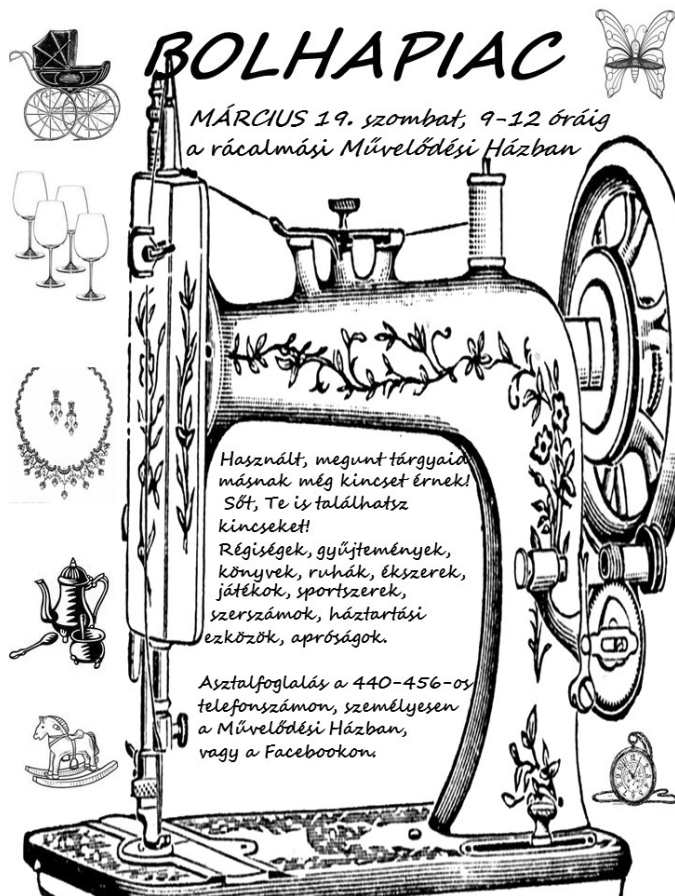 BOLHAPIAC
MÁRCIUS 19. szombat, 9-12 óráig
a rácalmási Művelődési Házban
Használt, megunt tárgyaid
másnak még kincset érnek!
Sőt, Te is találhatsz
kincseket!
Régiségek, gyűjtemények,
könyvek, ruhák, ékszerek,
játékok, sportszerek,
szerszámok, háztartási
ezközök, apróságok.
Asztalfoglalás a 440-456-os
telefonszámon, személyesen
a Művelődési Házban,
vagy a Facebookon.